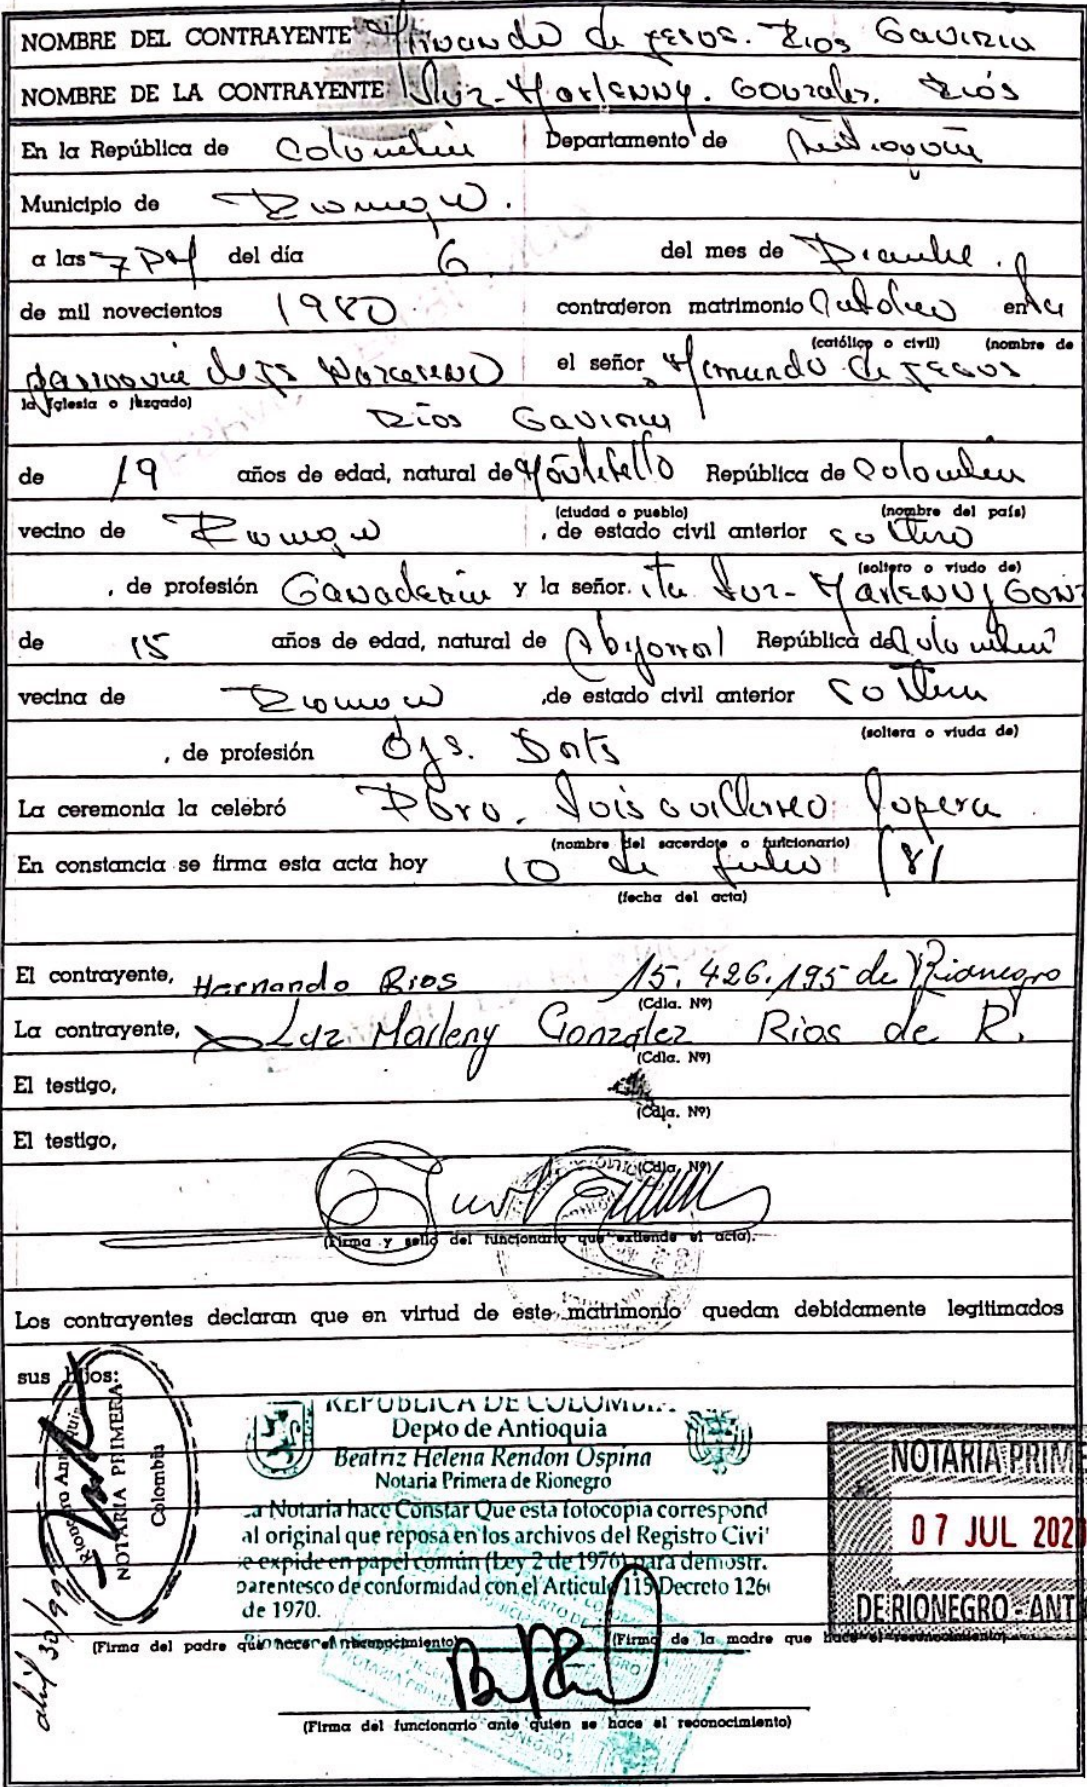 NOMBRE DEL CONTRAYENTE Hernando de Jesus. Rios Gaviria
NOMBRE DE LA CONTRAYENTE Luz-Marlenny. Gonzalez. Riós
En la República de Colombia Departamento de Antioquia
Municipio de Rionegro.
a las 7 PM del día 6 del mes de Diciembre.
de mil novecientos 1980 contrajeron matrimonio Catolico en la
(católico o civil) (nombre de
parroquia de Js Nazareno el señor Hernando de Jesus
la iglesia o juzgado)
Rios Gaviria
de 19 años de edad, natural de Montebello República de Colombia
(ciudad o pueblo) (nombre del país)
vecino de Rionegro, de estado civil anterior soltero
(soltero o viudo de)
, de profesión Ganaderia y la señor.ita Luz-Marlenny Gonz
de 15 años de edad, natural de Abejorral República de Colombia
vecina de Rionegro ,de estado civil anterior soltera
(soltera o viuda de)
, de profesión Ofs. Dmts
La ceremonia la celebró Pbro. Luis Guillermo Lopera
(nombre del sacerdote o funcionario)
En constancia se firma esta acta hoy 10 de Julio /81
(fecha del acta)
El contrayente, Hernando Rios 15.426.195 de Rionegro
(Cdla. Nº)
La contrayente, Luz Marleny González Rios de R.
(Cdla. Nº)
El testigo,
(Cdla. Nº)
El testigo,
(Cdla. Nº)
(Firma y sello del funcionario que extiende el acta).
Los contrayentes declaran que en virtud de este matrimonio quedan debidamente legitimados
sus hijos:
NOTARIA PRIMERA
Colombia
abril 30/99
REPUBLICA DE COLOMBIA
Depto de Antioquia
Beatriz Helena Rendon Ospina
Notaria Primera de Rionegro
La Notaria hace Constar Que esta fotocopia correspond
al original que reposa en los archivos del Registro Civi
se expide en papel común (Ley 2 de 1976) para demostr.
parentesco de conformidad con el Articulo 115 Decreto 126
de 1970.
NOTARIA PRIME
07 JUL 202
DE RIONEGRO - ANT
(Firma del padre que hace el reconocimiento) (Firma de la madre que hace el reconocimiento)
(Firma del funcionario ante quien se hace el reconocimiento)